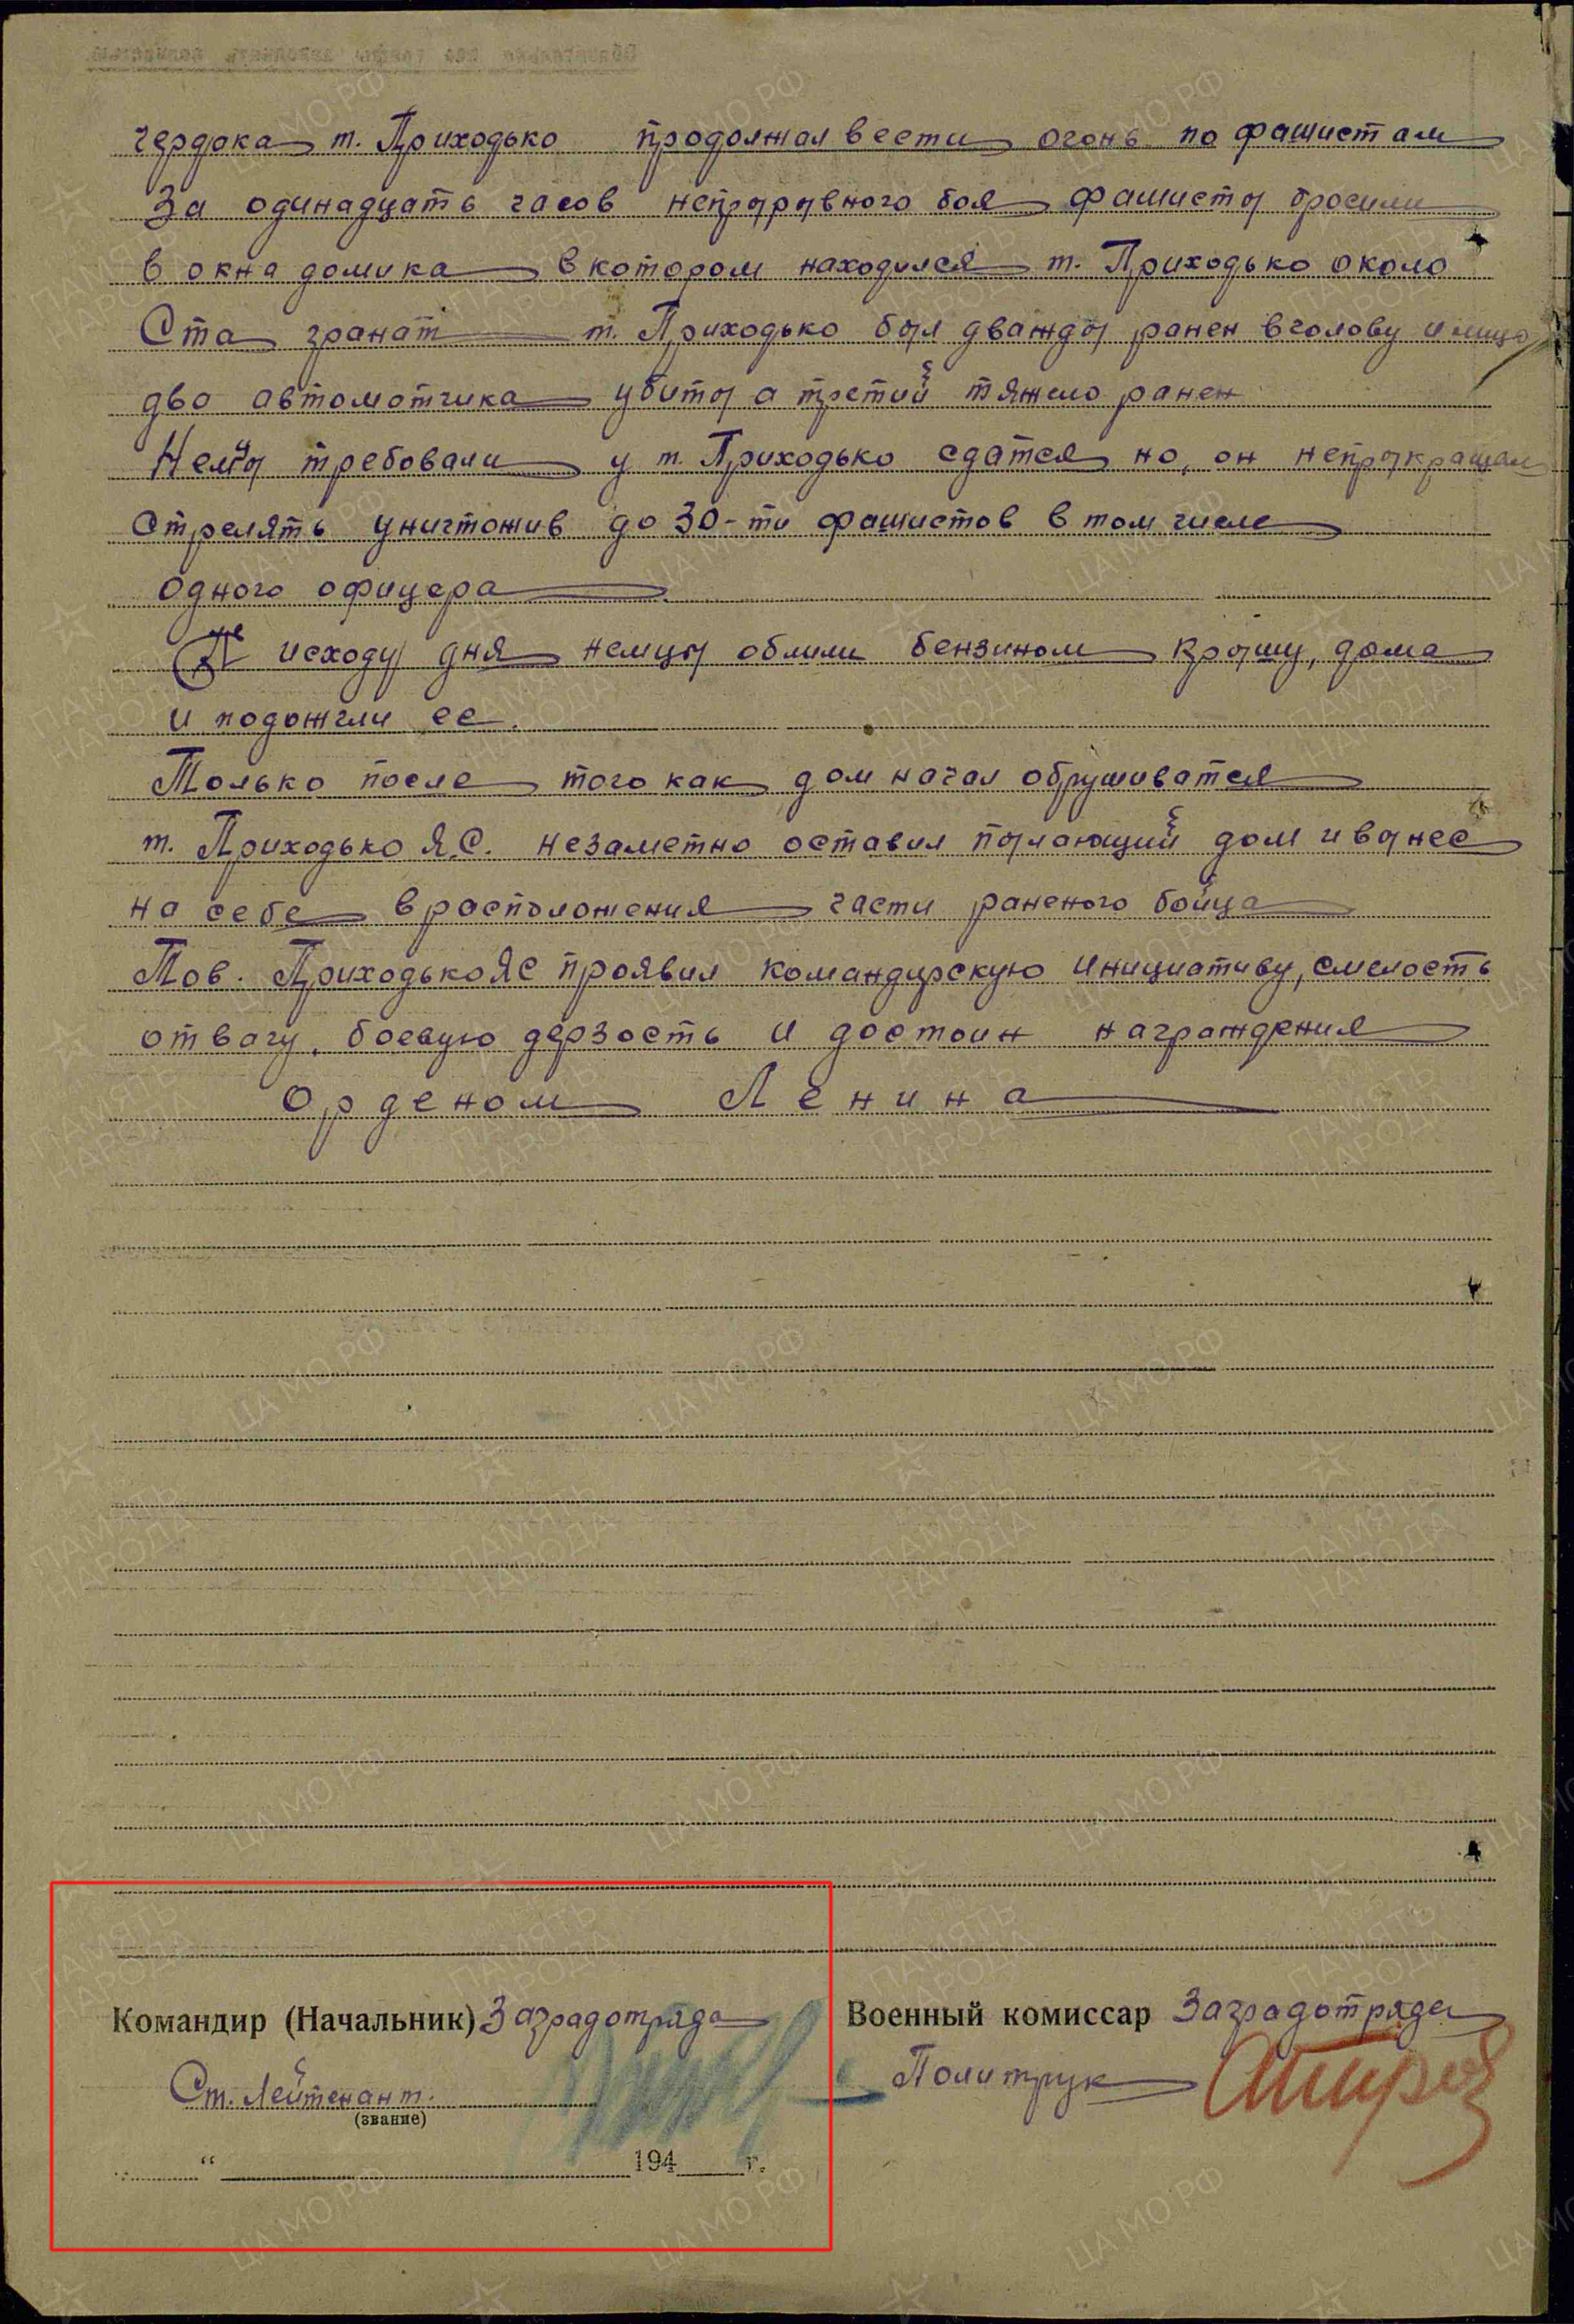 чердака т. Приходько продолжал вести огонь по фашистам
За одинадцать часов непрырывного боя фашисты бросили
в окна домика в котором находился т. Приходько около
Ста гранат т. Приходько был дважды ранен в голову и лицо
два автоматчика убиты а третий тяжело ранен
Немцы требовали у т. Приходько сдатся но, он непрыкращал
Стрелять уничтожив до 30-ти фашистов в том числе
одного офицера
К исходу дня немцы облили бензином крышу, дома
и подожгли ее.
Только после того как дом начал обрушиватся
т. Приходько Я.С. незаметно оставил пылающий дом и вынес
на себе в расположения части раненого бойца
Тов. Приходько ЯС проявил командирскую инициативу, смелость
отвагу, боевую дерзость и достоин награждения
Орденом Ленина
Командир (Начальник) Заградотряда
Военный комиссар Заградотряда
Ст. Лейтенант.
Политрук
(звание)
" 194 г.
ЦА МО РФ
ПАМЯТЬ НАРОДА